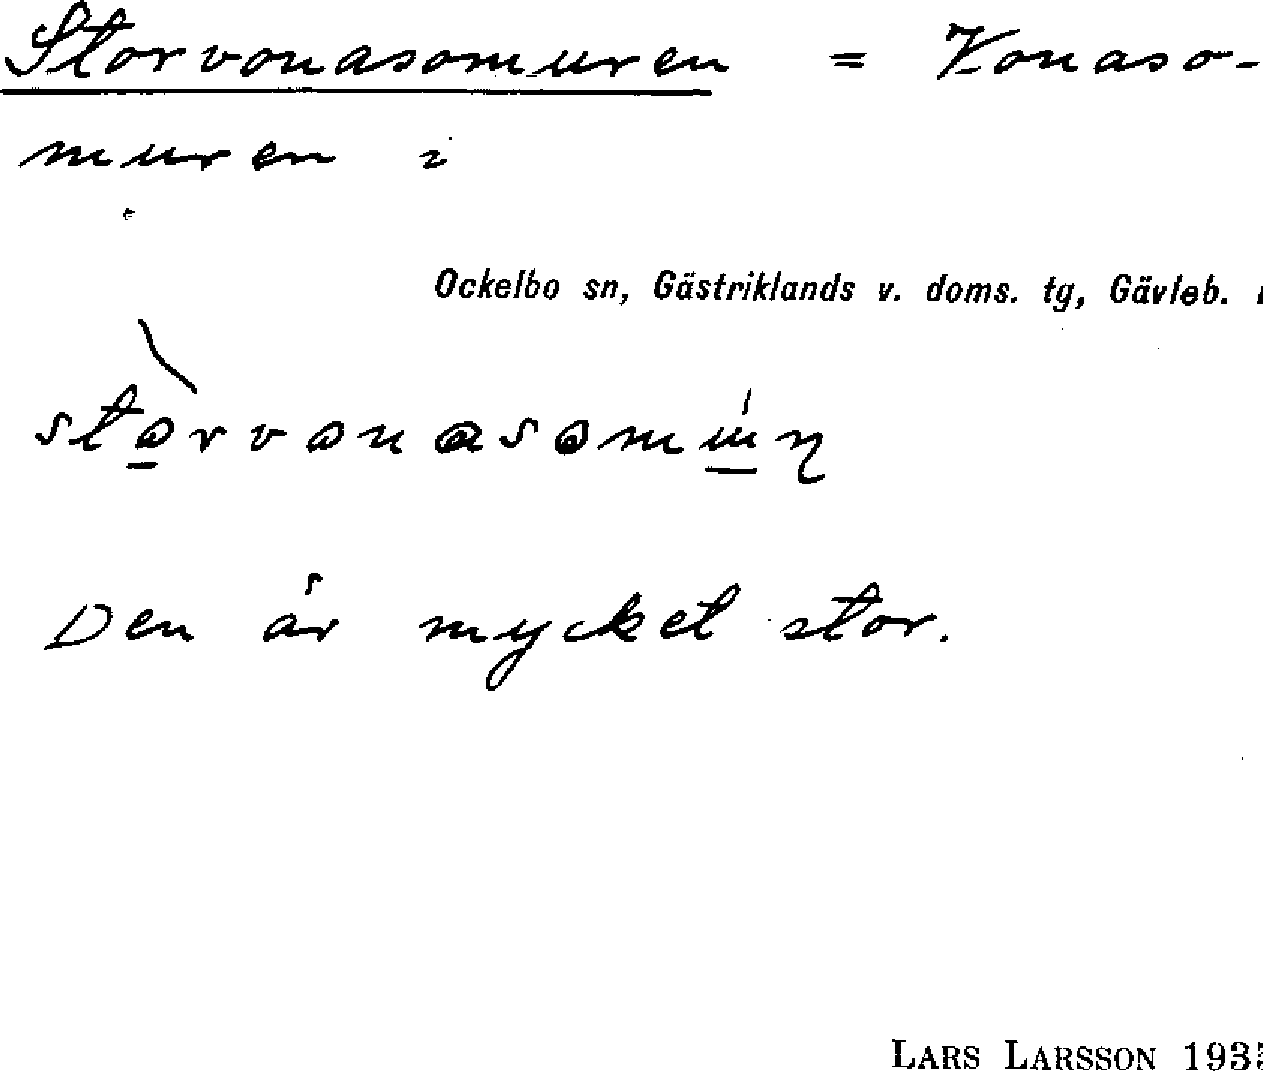 Storvonasomuren = Vonaso-
muren i
Ockelbo sn, Gästriklands v. doms. tg, Gävleb.
Den är mycket stor.
LARS LARSSON